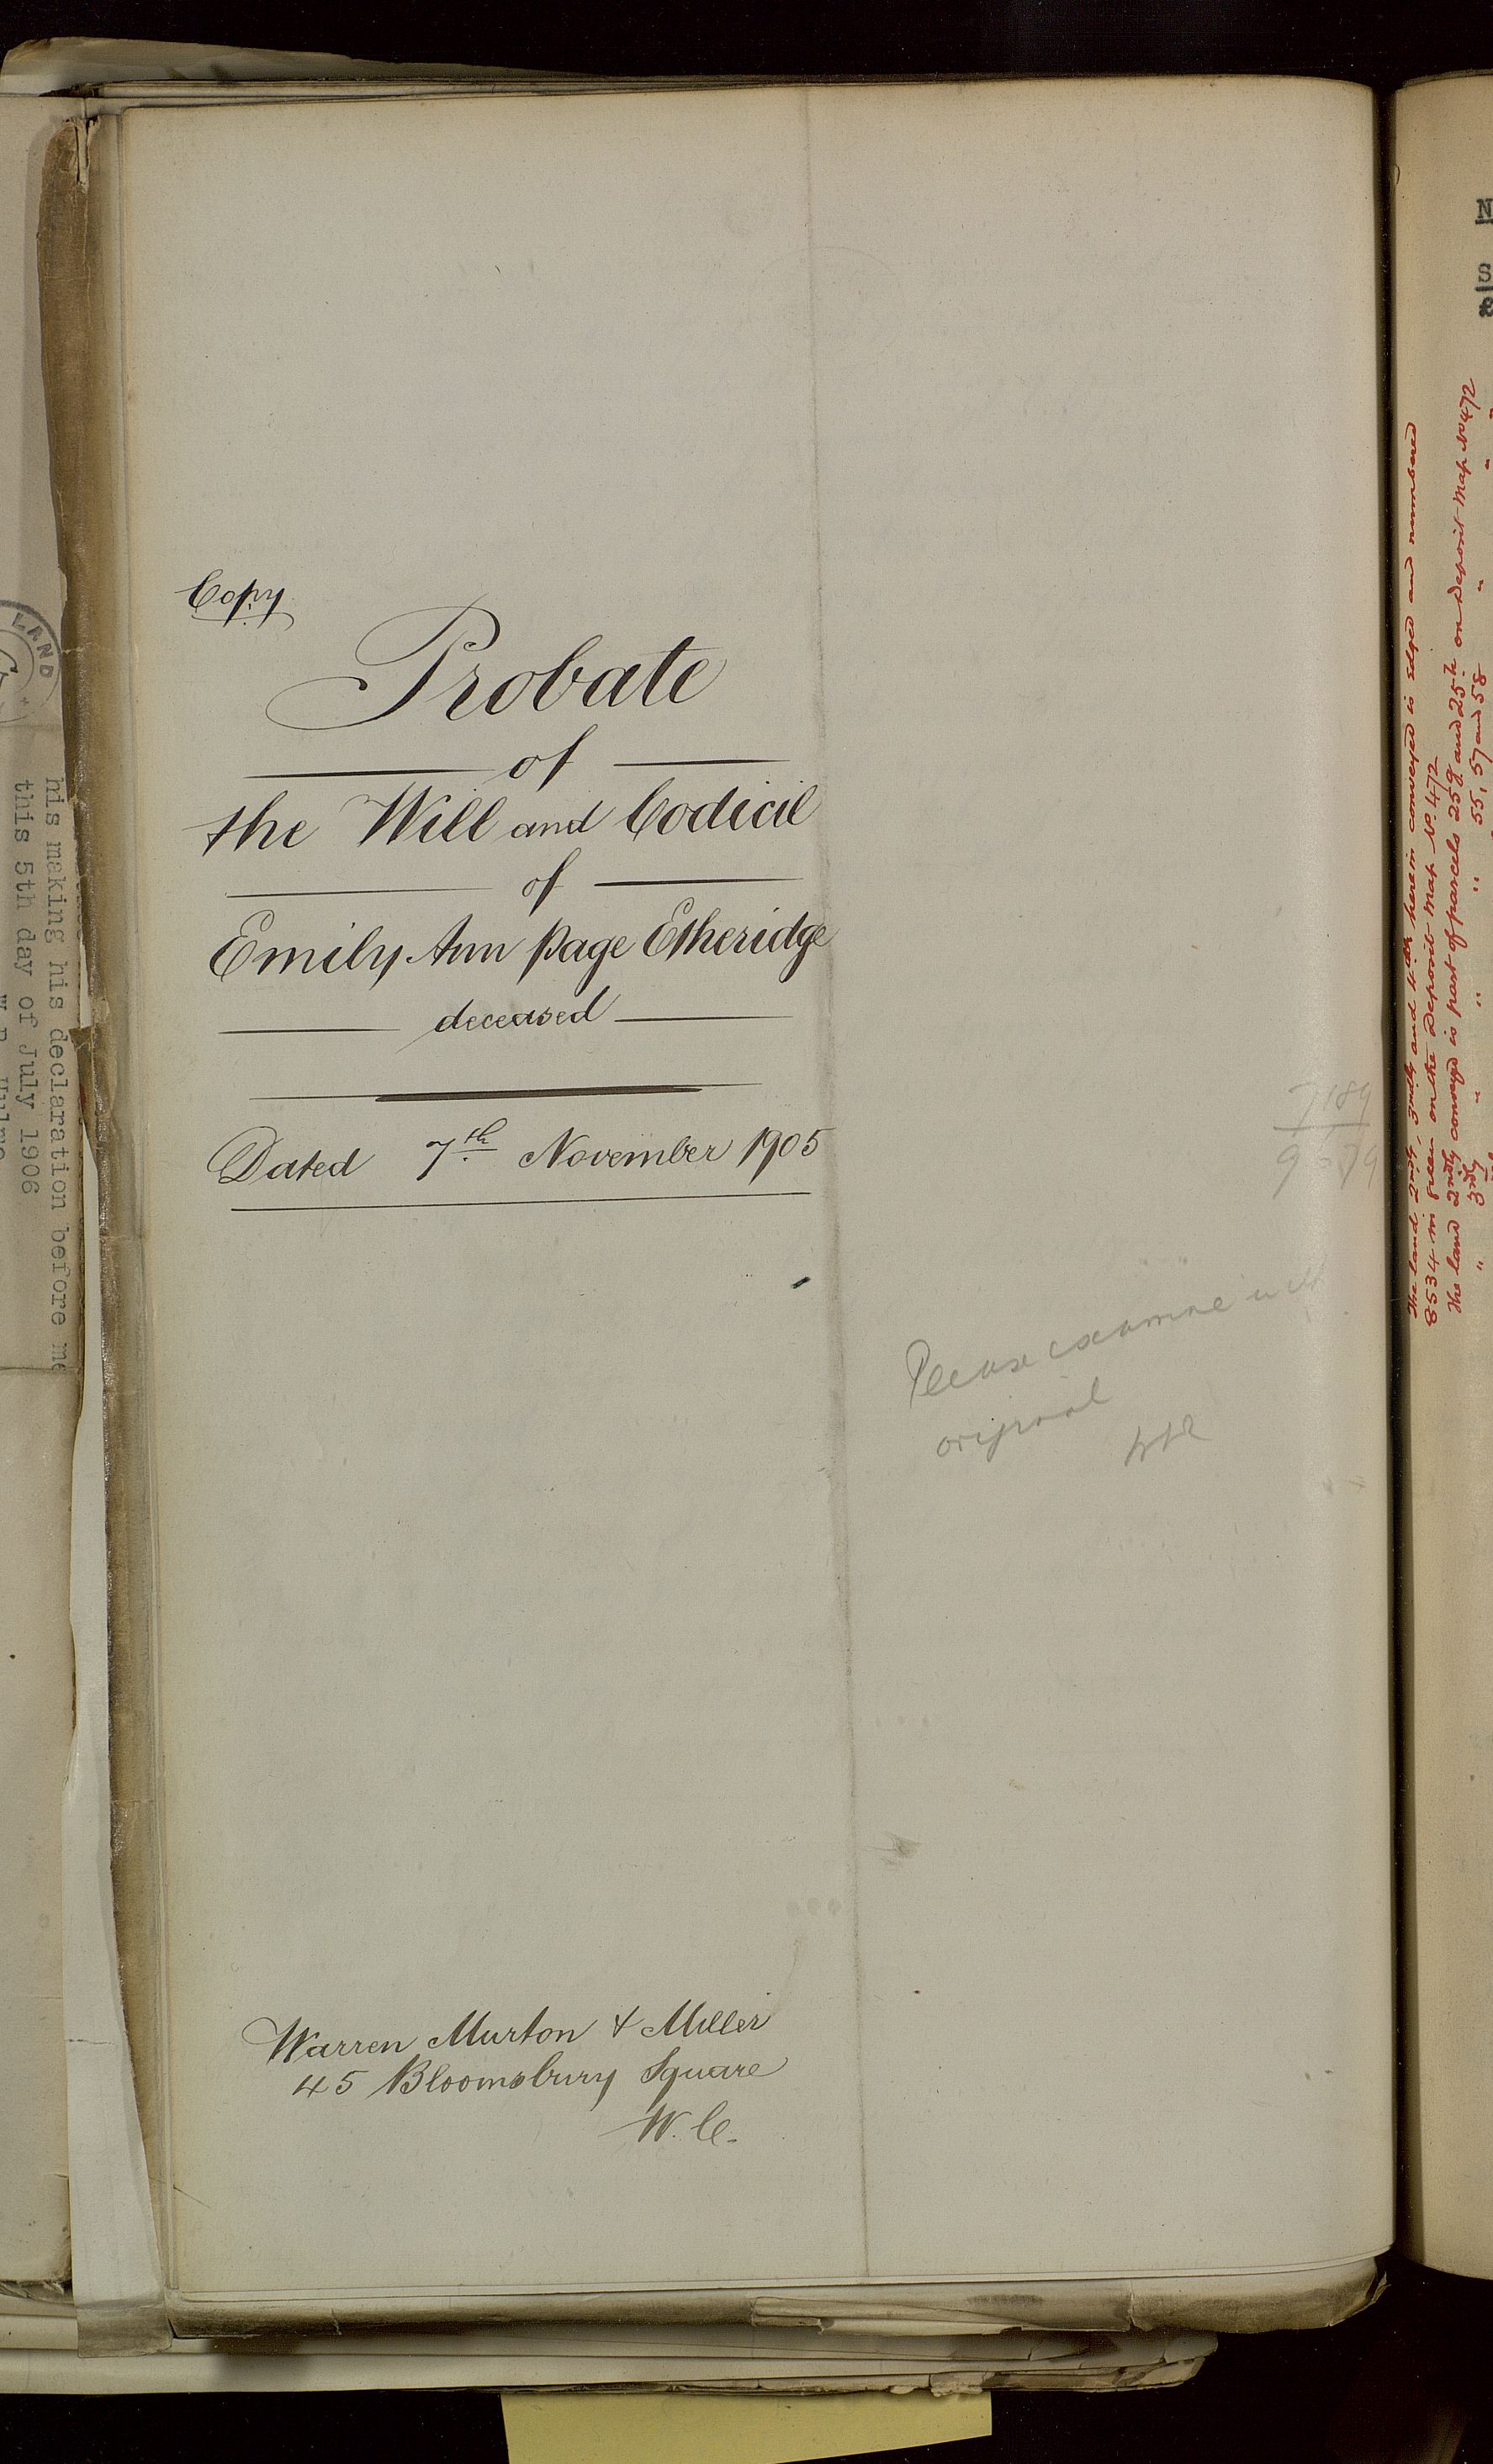 Copy
Probate
of
the Will and Codicil
of
Emily Ann Page Etheridge
deceased
Dated 7th November 1905
Warren Murton & Miller
45 Bloomsbury Square
W.C.
7189
Please examine with
original
LAND
his making his declaration before me
this 5th day of July 1906
The land 2ndly, 3rdly and 4thly herein conveyed is edged and numbered
8534 in green on the Deposit Map No. 472
The land 2ndly conveyed is part of parcels 25g and 25h on Deposit Map No 472
" 3rdly " " " 55, 57 and 58 " " "